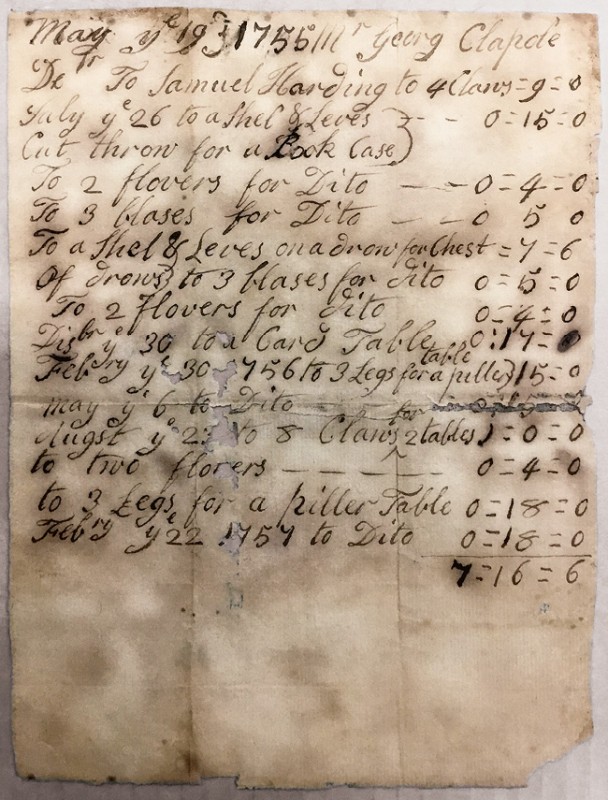 May ye 19 1755 Mr Georg Clapole
Dr To Samuel Harding to 4 Claws = 9 = 0
July ye 26 to a Shel & Leves } - - 0 = 15 = 0
Cut throw for a Book Case }
To 2 flovers for Dito — - 0 = 4 = 0
To 3 blases for Dito — - 0 5 0
To a Shel & Leves on a drow for Chest = 7 = 6
Of drows to 3 blases for dito 0 = 5 = 0
To 2 flovers for dito 0 = 4 = 0
Disbr ye 30 to a Card Table 0 : 17 =
Febry ye 30 1756 to 3 Legs for a piller table } 15 = 0
may ye 6 to Dito
Augst ye 23 to 8 Claws for 2 tables = 0 = 0
to two flovers — — — — 0 = 4 = 0
to 3 Legs for a piller Table 0 = 18 = 0
Febry ye 22 1757 to Dito 0 = 18 = 0
7 = 16 = 6